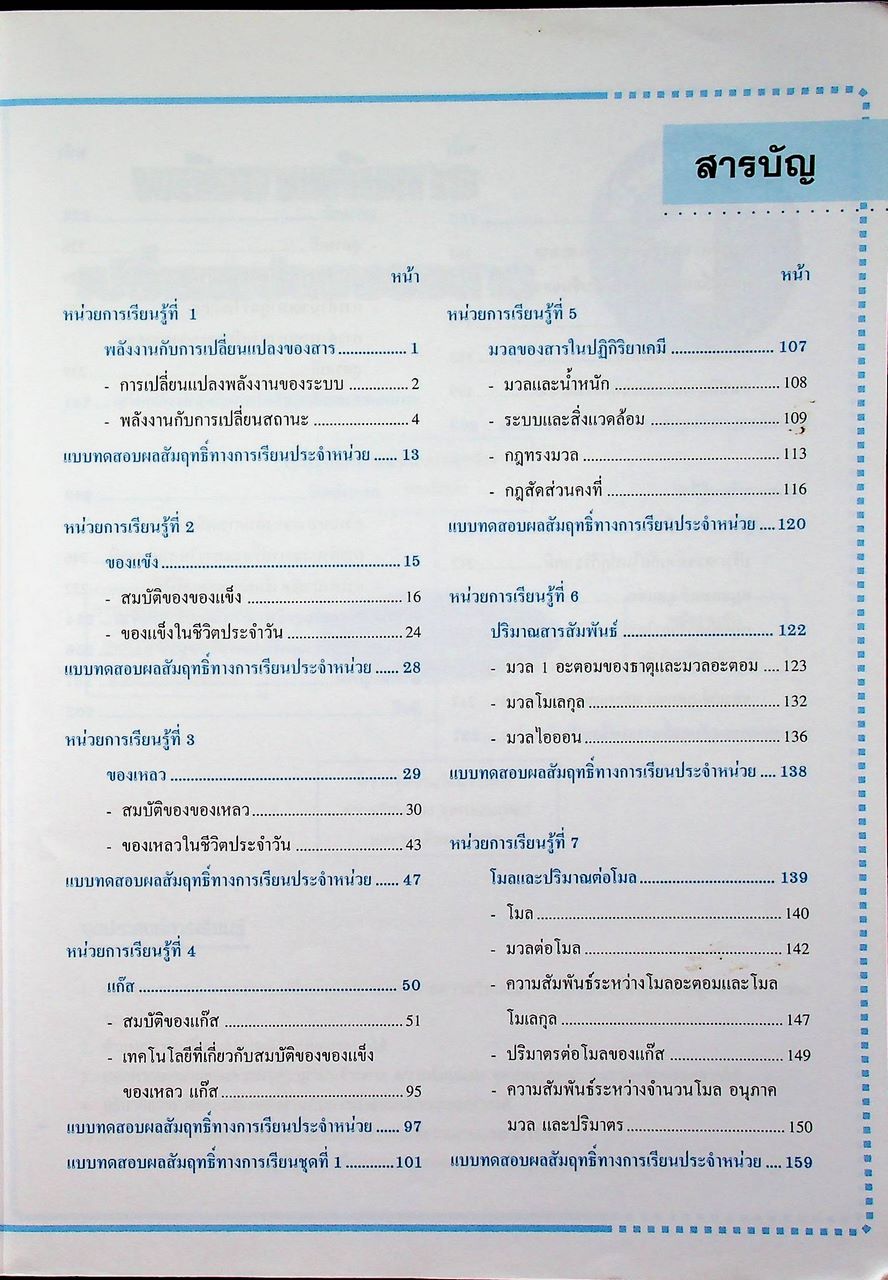 สารบัญ
หน้า
หน่วยการเรียนรู้ที่ 1
พลังงานกับการเปลี่ยนแปลงของสาร................. 1
- การเปลี่ยนแปลงพลังงานของระบบ ............... 2
- พลังงานกับการเปลี่ยนสถานะ ........................ 4
แบบทดสอบผลสัมฤทธิ์ทางการเรียนประจำหน่วย ...... 13
หน่วยการเรียนรู้ที่ 2
ของแข็ง............................................................ 15
- สมบัติของของแข็ง ........................................ 16
- ของแข็งในชีวิตประจำวัน ............................. 24
แบบทดสอบผลสัมฤทธิ์ทางการเรียนประจำหน่วย ...... 28
หน่วยการเรียนรู้ที่ 3
ของเหลว ......................................................... 29
- สมบัติของของเหลว...................................... 30
- ของเหลวในชีวิตประจำวัน ........................... 43
แบบทดสอบผลสัมฤทธิ์ทางการเรียนประจำหน่วย ...... 47
หน่วยการเรียนรู้ที่ 4
แก๊ส ................................................................. 50
- สมบัติของแก๊ส ............................................. 51
- เทคโนโลยีที่เกี่ยวกับสมบัติของของแข็ง
ของเหลว แก๊ส.............................................. 95
แบบทดสอบผลสัมฤทธิ์ทางการเรียนประจำหน่วย ...... 97
แบบทดสอบผลสัมฤทธิ์ทางการเรียนชุดที่ 1 ............101
หน้า
หน่วยการเรียนรู้ที่ 5
มวลของสารในปฏิกิริยาเคมี .......................... 107
- มวลและน้ำหนัก .......................................... 108
- ระบบและสิ่งแวดล้อม ................................ 109
- กฎทรงมวล .................................................. 113
- กฎสัดส่วนคงที่ ............................................ 116
แบบทดสอบผลสัมฤทธิ์ทางการเรียนประจำหน่วย ....120
หน่วยการเรียนรู้ที่ 6
ปริมาณสารสัมพันธ์ ...................................... 122
- มวล 1 อะตอมของธาตุและมวลอะตอม .... 123
- มวลโมเลกุล ................................................ 132
- มวลไอออน ................................................. 136
แบบทดสอบผลสัมฤทธิ์ทางการเรียนประจำหน่วย .... 138
หน่วยการเรียนรู้ที่ 7
โมลและปริมาณต่อโมล.................................. 139
- โมล .............................................................. 140
- มวลต่อโมล ................................................... 142
- ความสัมพันธ์ระหว่างโมลอะตอมและโมล
โมเลกุล ........................................................ 147
- ปริมาตรต่อโมลของแก๊ส ............................. 149
- ความสัมพันธ์ระหว่างจำนวนโมล อนุภาค
มวล และปริมาตร ........................................ 150
แบบทดสอบผลสัมฤทธิ์ทางการเรียนประจำหน่วย .... 159